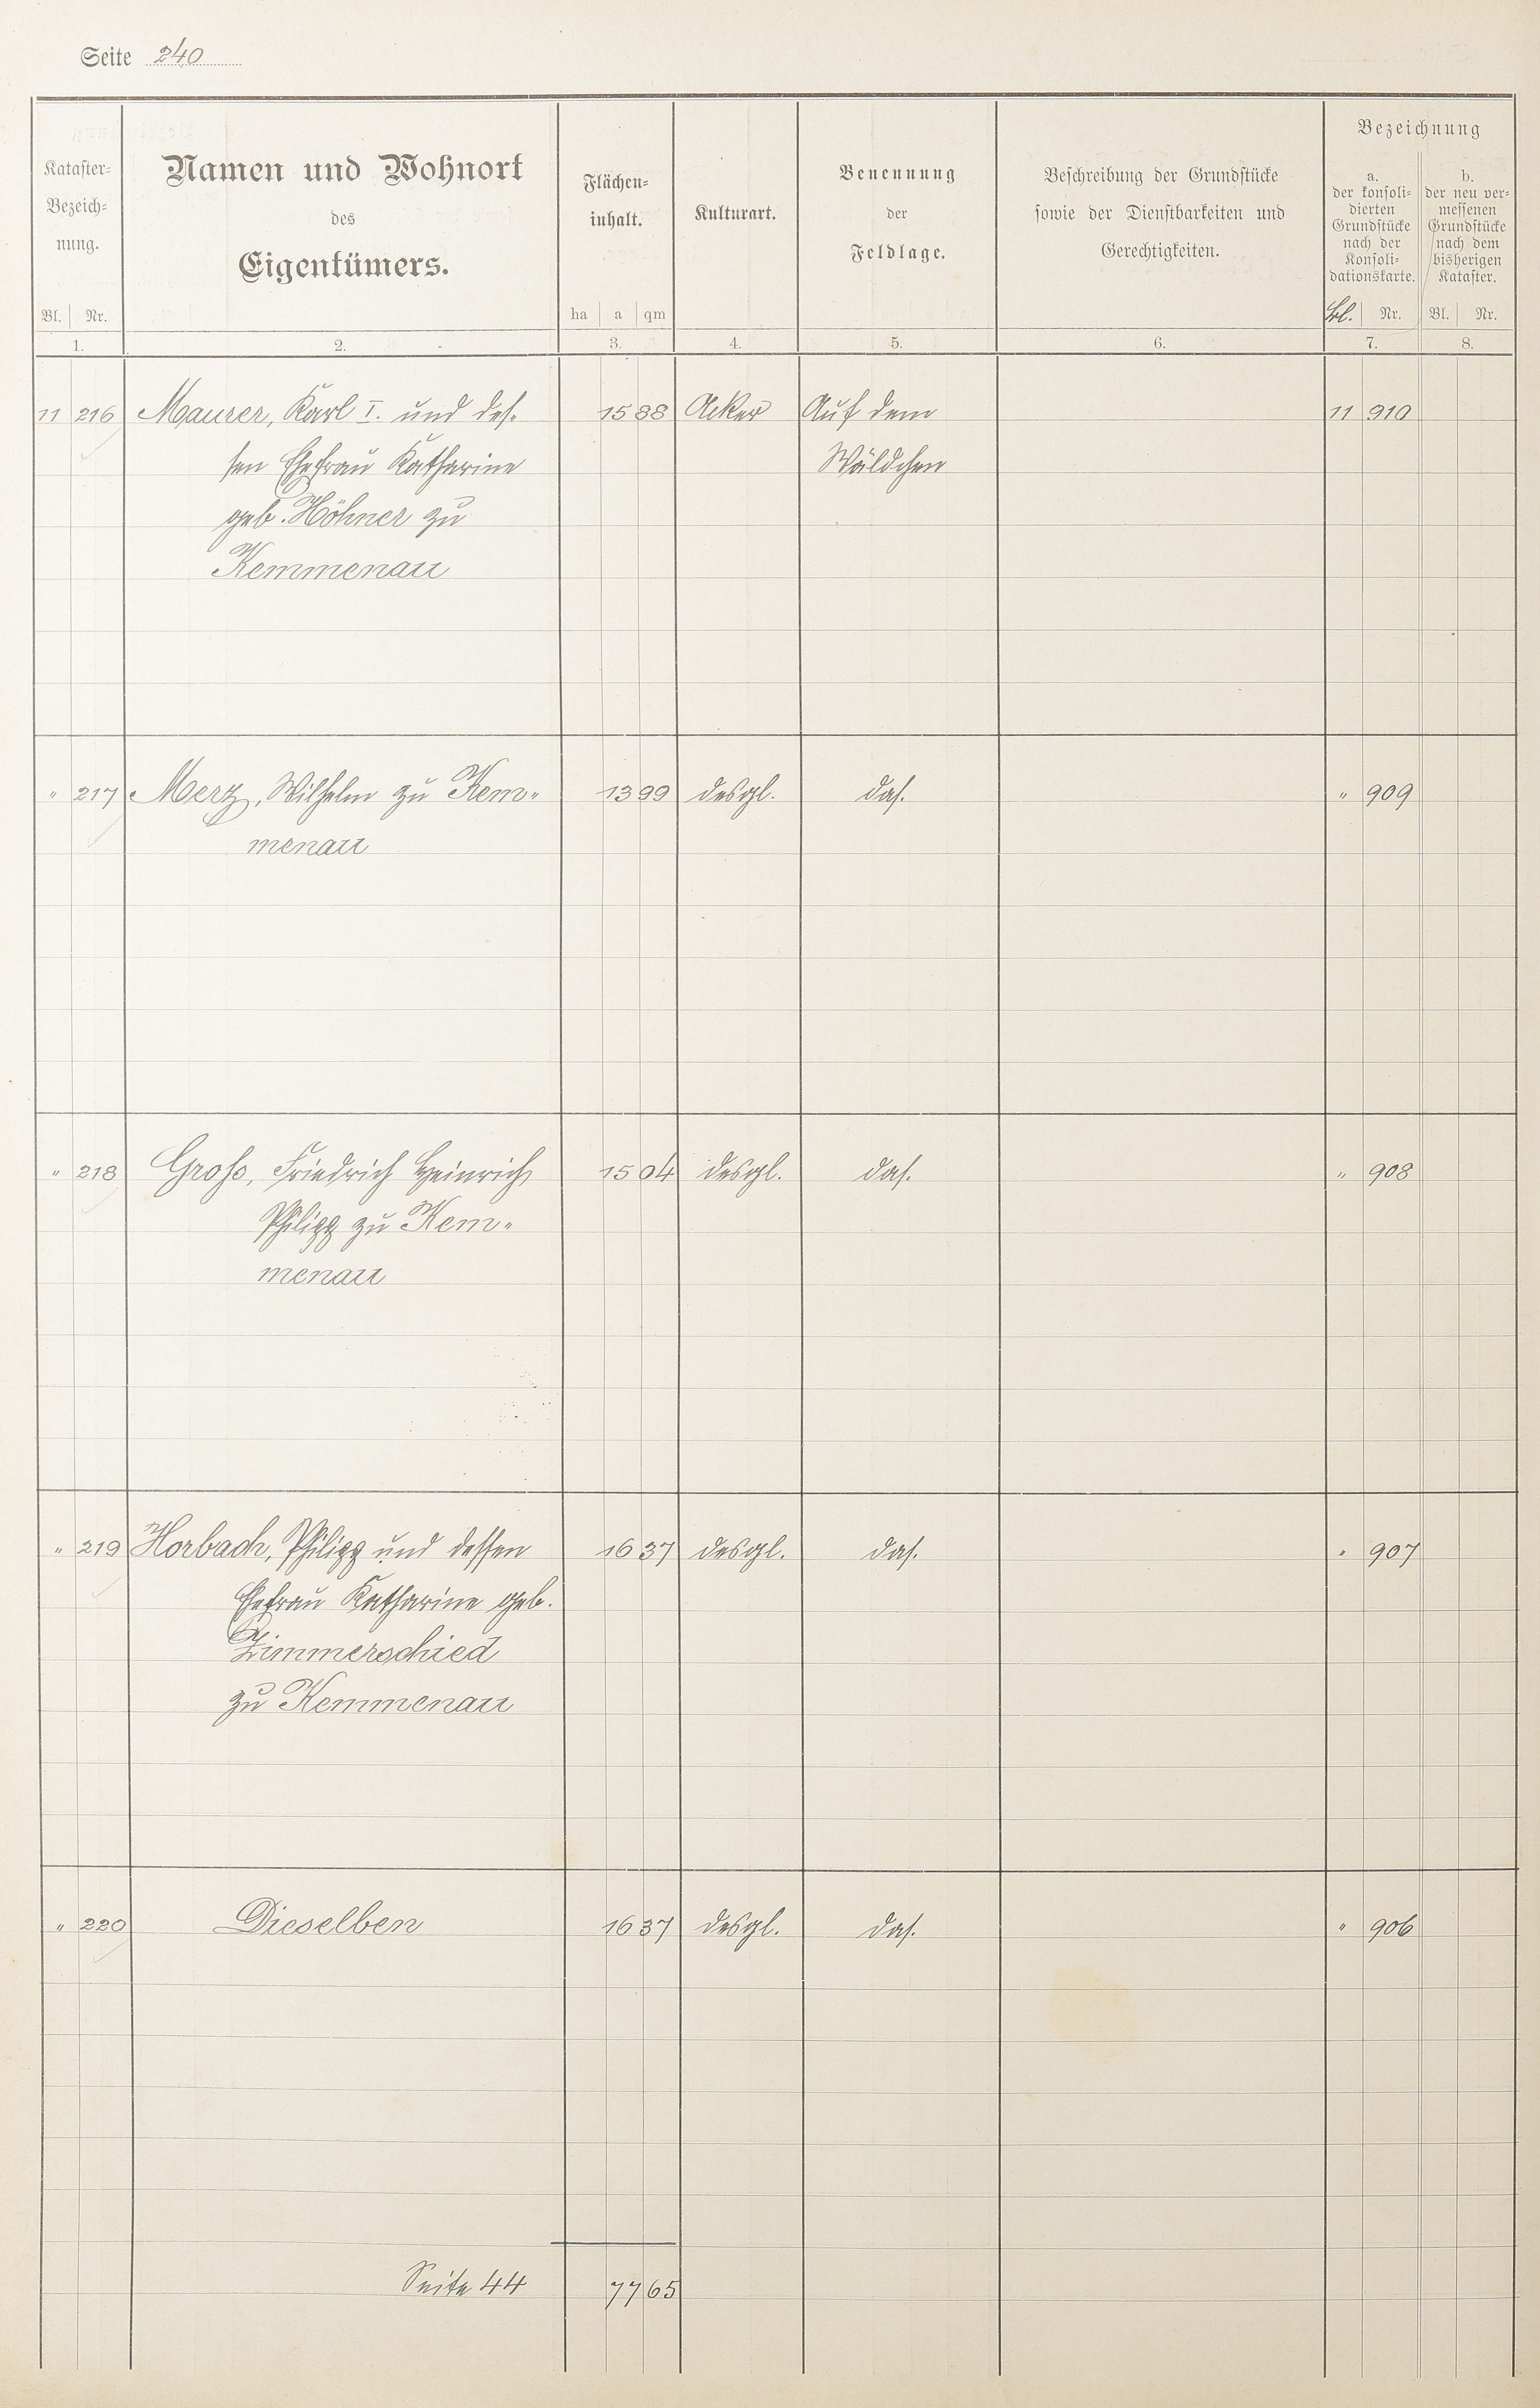 Seite 240
Kataster-
Bezeich-
nung.
Bl. Nr.
1.
Namen und Wohnort
des
Eigentümers.
2.
Flächen-
inhalt.
ha a qm
3.
Kulturart.
4.
Benennung
der
Feldlage.
5.
Beschreibung der Grundstücke
sowie der Dienstbarkeiten und
Gerechtigkeiten.
6.
Bezeichnung
a.
der konsoli-
dierten
Grundstücke
nach der
Konsoli-
dationskarte.
Bl. Nr.
7.
b.
der neu ver-
messenen
Grundstücke
nach dem
bisherigen
Kataster.
Bl. Nr.
8.
11 216 Maurer, Karl I. und des- 15 88 Acker Auf dem 11 910
sen Ehefrau Katharine Wäldchen
geb. Höhner zu
Kemmenau
" 217 Merz, Wilhelm zu Kem- 13 99 desgl. das. " 909
menau
" 218 Groß, Friedrich Heinrich 15 04 desgl. das. " 908
Philipp zu Kem-
menau
" 219 Horbach, Philipp und dessen 16 37 desgl. das. " 907
Ehefrau Katharine geb.
Zimmerschied
zu Kemmenau
" 220 Dieselben 16 37 desgl. das. " 906
Seite 44 77 65